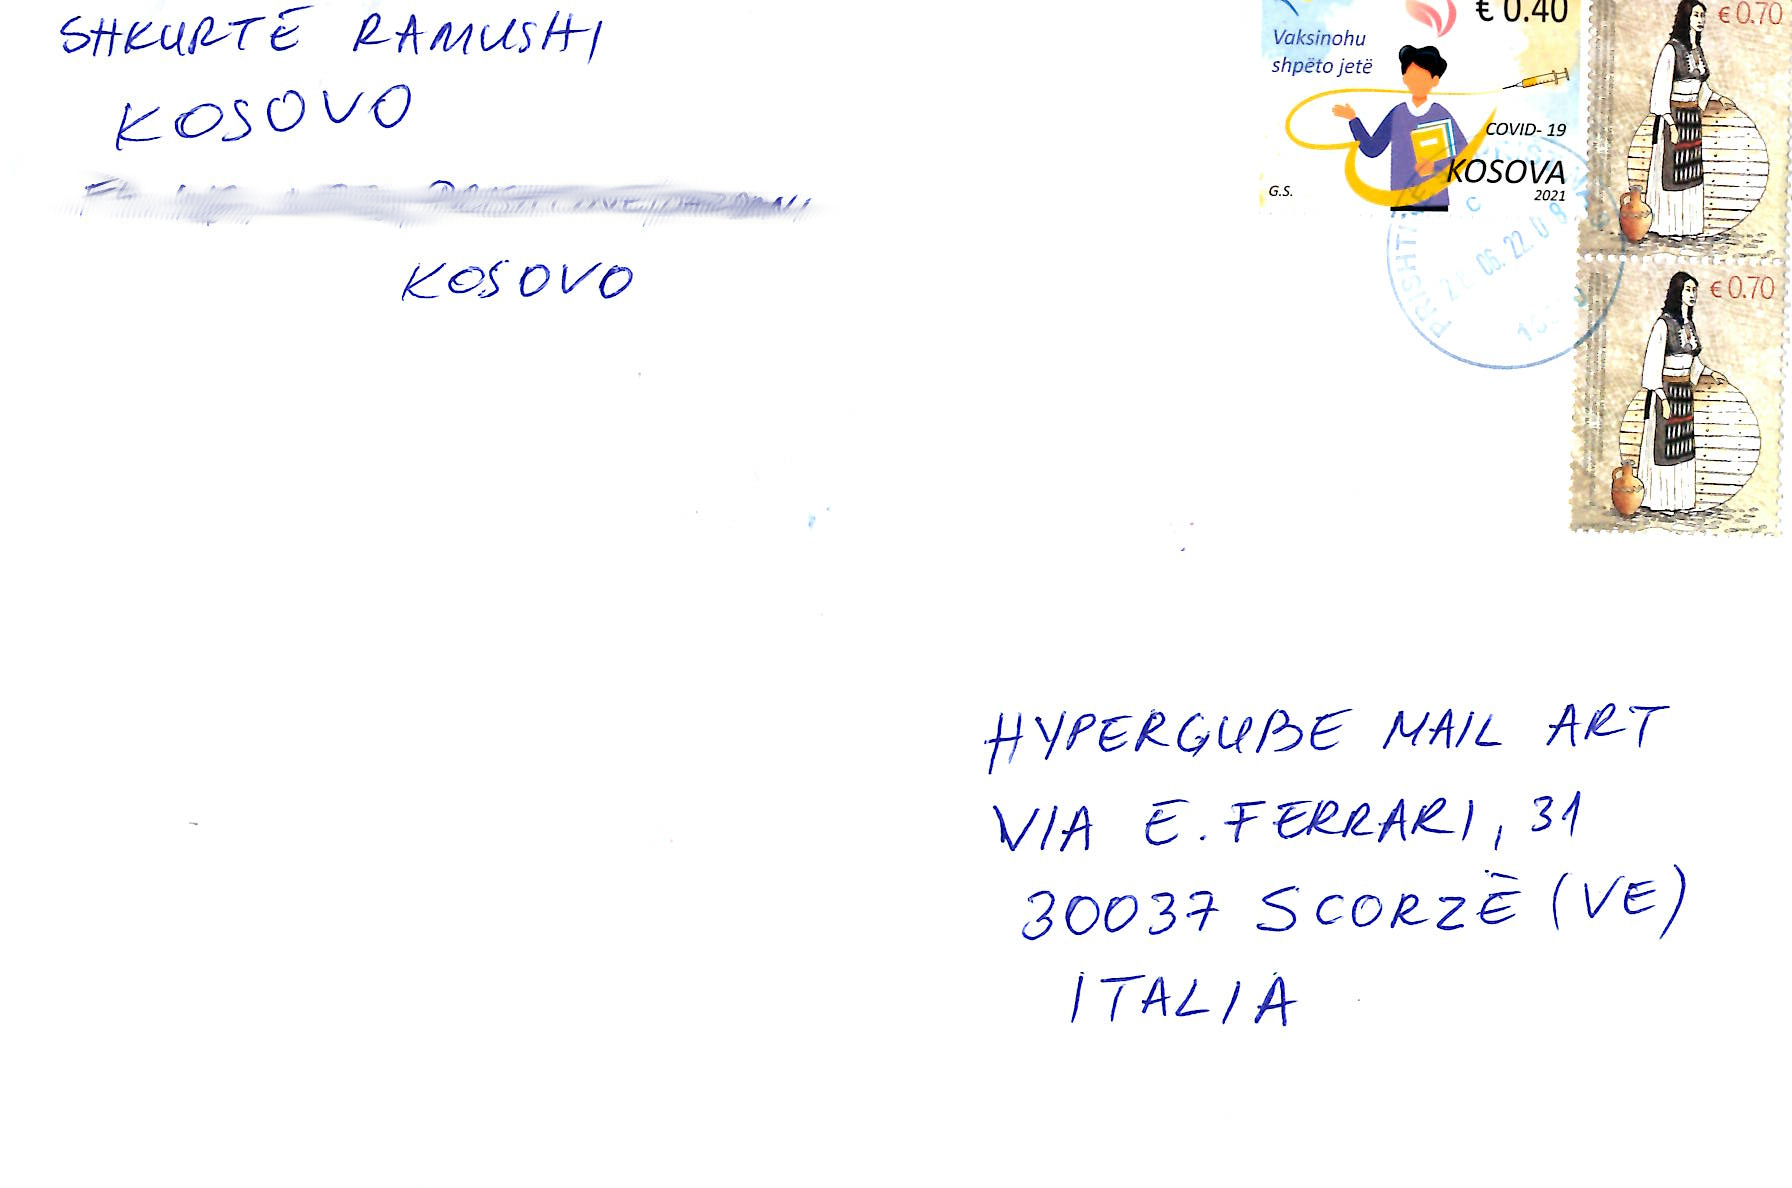 SHKURTË RAMUSHI
KOSOVO
KOSOVO
€ 0.40
Vaksinohu
shpëto jetë
COVID- 19
KOSOVA
2021
G.S.
€ 0.70
€ 0.70
06.22.08
HYPERGUBE MAIL ART
VIA E. FERRARI, 31
30037 SCORZÈ (VE)
ITALIA